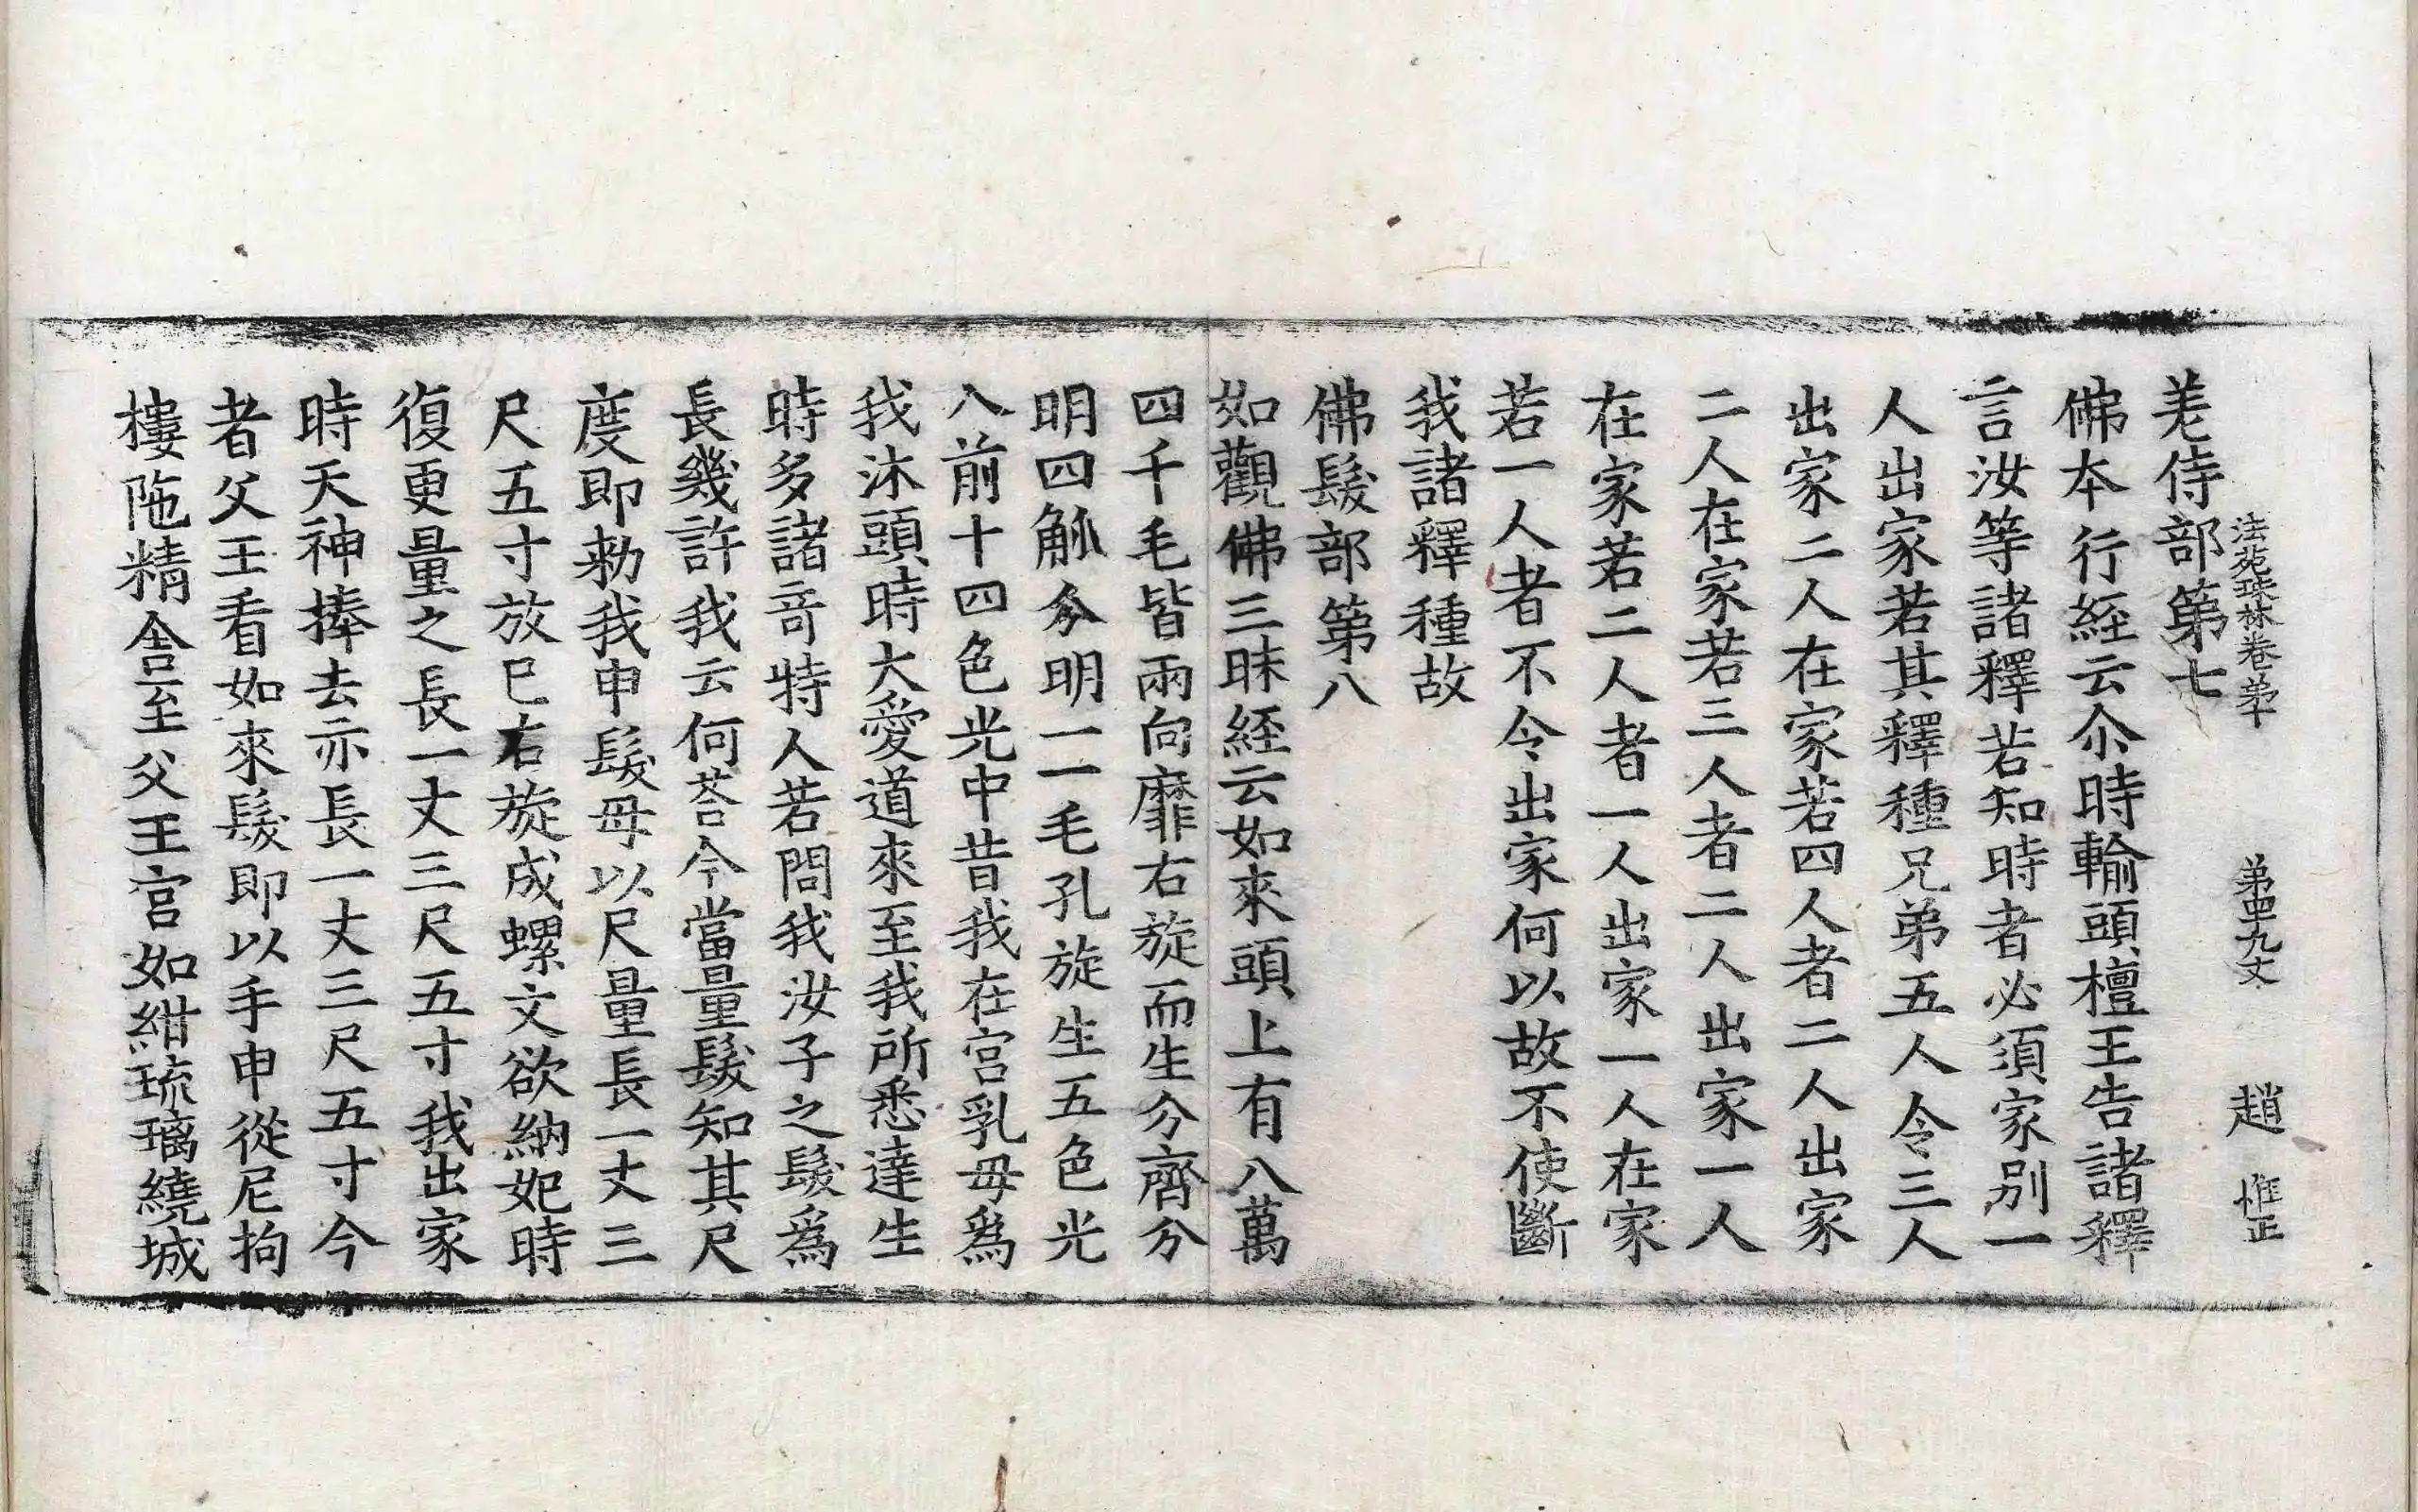 法苑珠林卷苐十 苐四九丈 趙 惟正
差侍部第七
佛本行経云尒時輸頭檀王告諸釋
言汝等諸釋若知時者必須家別一
人出家若其釋種兄弟五人令三人
出家二人在家若四人者二人出家
二人在家若三人者二人出家一人
在家若二人者一人出家一人在家
若一人者不令出家何以故不使斷
我諸釋種故
佛髮部第八
如觀佛三昧経云如來頭上有八萬
四千毛皆兩向靡右旋而生分齊分
明四觚分明一一毛孔旋生五色光
入前十四色光中昔我在宮乳母爲
我沐頭時大愛道來至我所悉達生
時多諸竒特人若問我汝子之髮爲
長幾許我云何荅今當量髮知其尺
度即勑我申髮母以尺量長一丈三
尺五寸放已右旋成螺文欲納妃時
復更量之長一丈三尺五寸我出家
時天神捧去亦長一丈三尺五寸今
者父王看如來髮即以手申從尼拘
樓陁精舎至父王宮如紺琉璃繞城